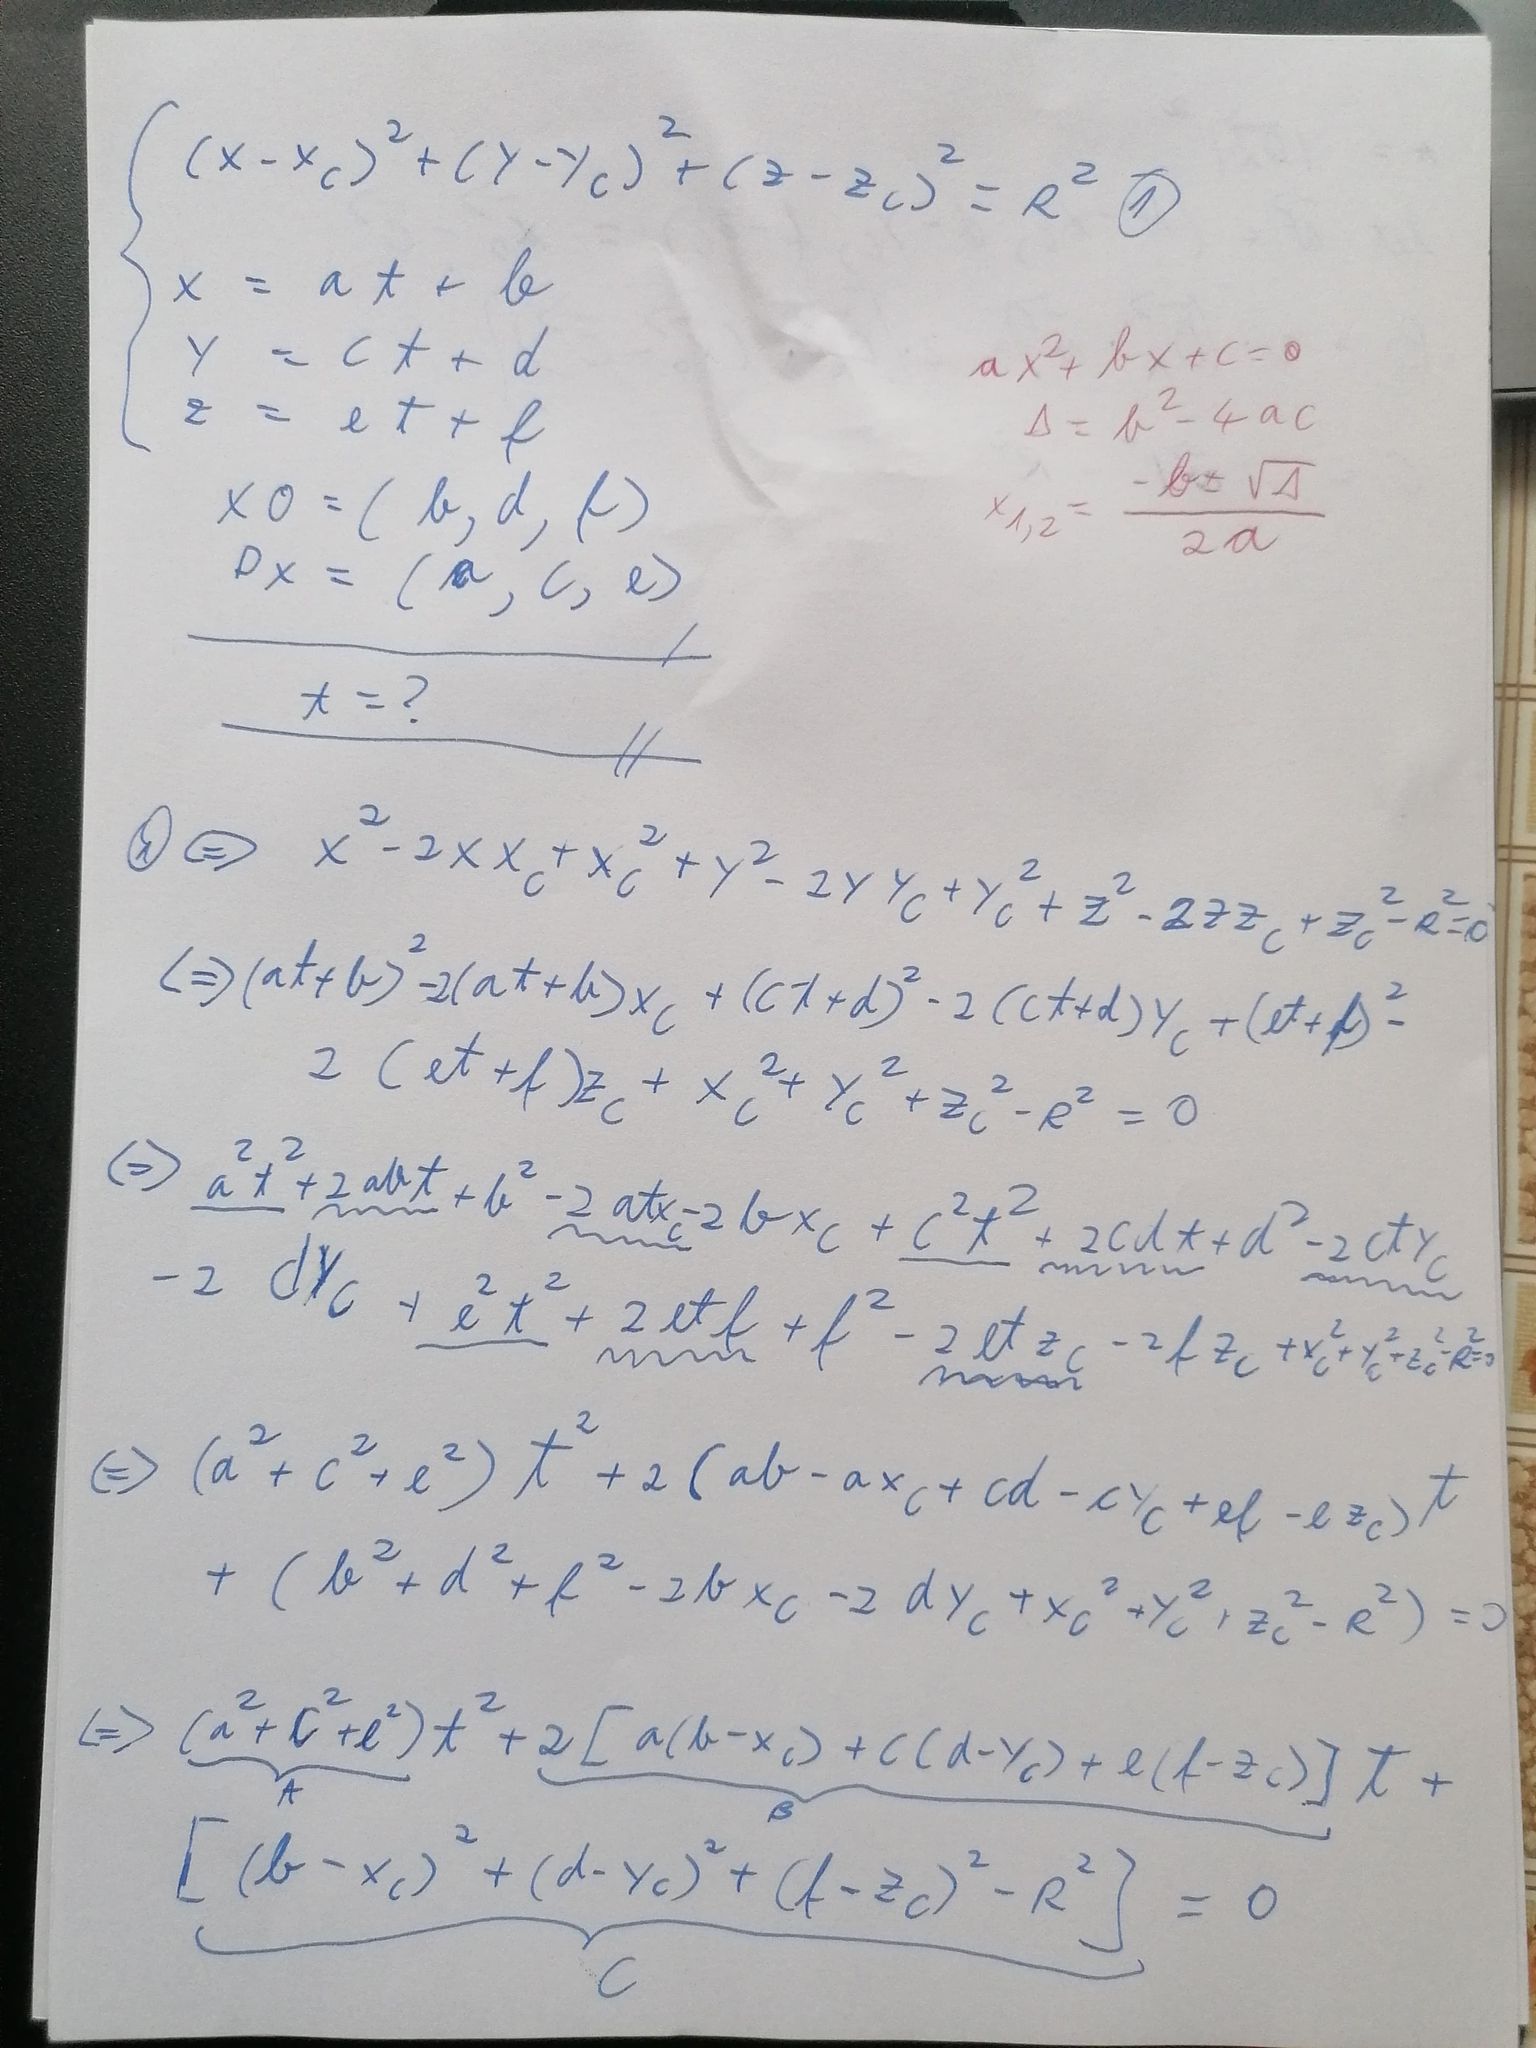 (x-x_c)² + (y-y_c)² + (z-z_c)² = R² ①
x = at + b
y = ct + d
z = et + f
x0 = (b, d, f)
Dx = (a, c, e)
t = ?
ax² + bx + c = 0
Δ = b² - 4ac
x_1,2 = (-b ± √Δ) / 2a
① ⇔ x² - 2xx_c + x_c² + y² - 2yy_c + y_c² + z² - 2zz_c + z_c² - R² = 0
⇔ (at+b)² - 2(at+b)x_c + (ct+d)² - 2(ct+d)y_c + (et+f)² -
2(et+f)z_c + x_c² + y_c² + z_c² - R² = 0
⇔ a²t² + 2abt + b² - 2atx_c - 2bx_c + c²t² + 2cdt + d² - 2cty_c
- 2dy_c + e²t² + 2etf + f² - 2etz_c - 2fz_c + x_c² + y_c² + z_c² - R² = 0
⇔ (a² + c² + e²)t² + 2(ab - ax_c + cd - cy_c + ef - ez_c)t
+ (b² + d² + f² - 2bx_c - 2dy_c + x_c² + y_c² + z_c² - R²) = 0
⇔ (a² + c² + e²)t² + 2[a(b-x_c) + c(d-y_c) + e(f-z_c)]t +
A B
[(b-x_c)² + (d-y_c)² + (f-z_c)² - R²] = 0
C